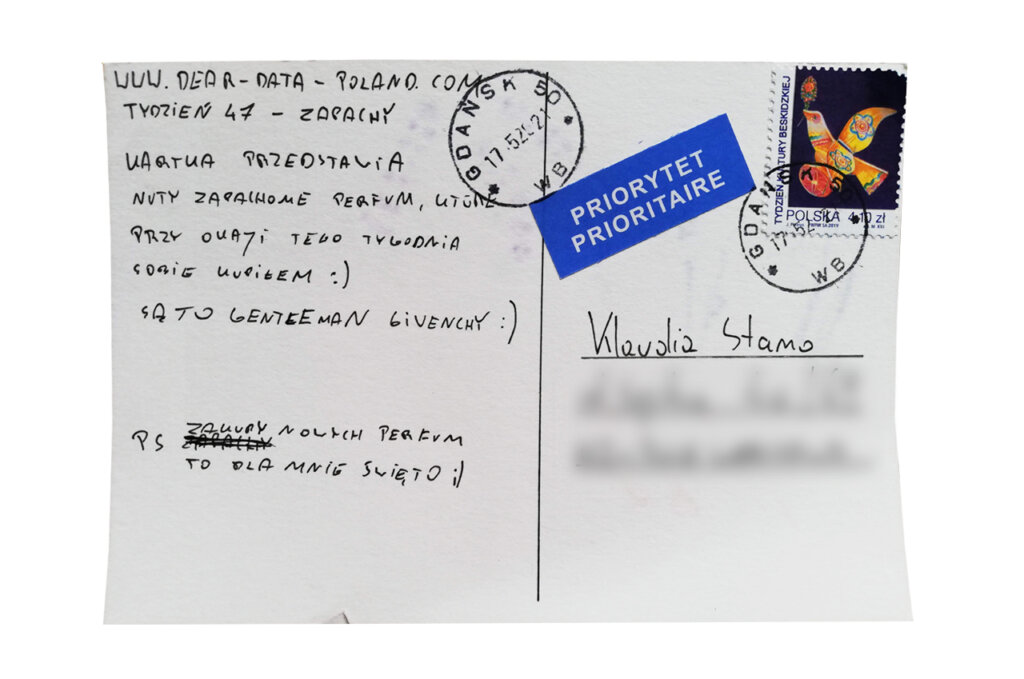 WWW.DEAR-DATA-POLAND.COM
TYDZIEŃ 47 - ZAPACHY
KARTKA PRZEDSTAWIA
NUTY ZAPACHOWE PERFUM, KTÓRE
PRZY OKAZJI TEGO TYGODNIA
SOBIE KUPIŁEM :)
SĄ TO GENTLEMAN GIVENCHY :)
PS ZAKUPY NOWYCH PERFUM
TO DLA MNIE ŚWIĘTO ;)
GDAŃSK 50
17
WB
PRIORYTET
PRIORITAIRE
TYDZIEŃ KULTURY BESKIDZKIEJ
POLSKA 4,10 zł
GDAŃSK
17
WB
Klaudia Stano